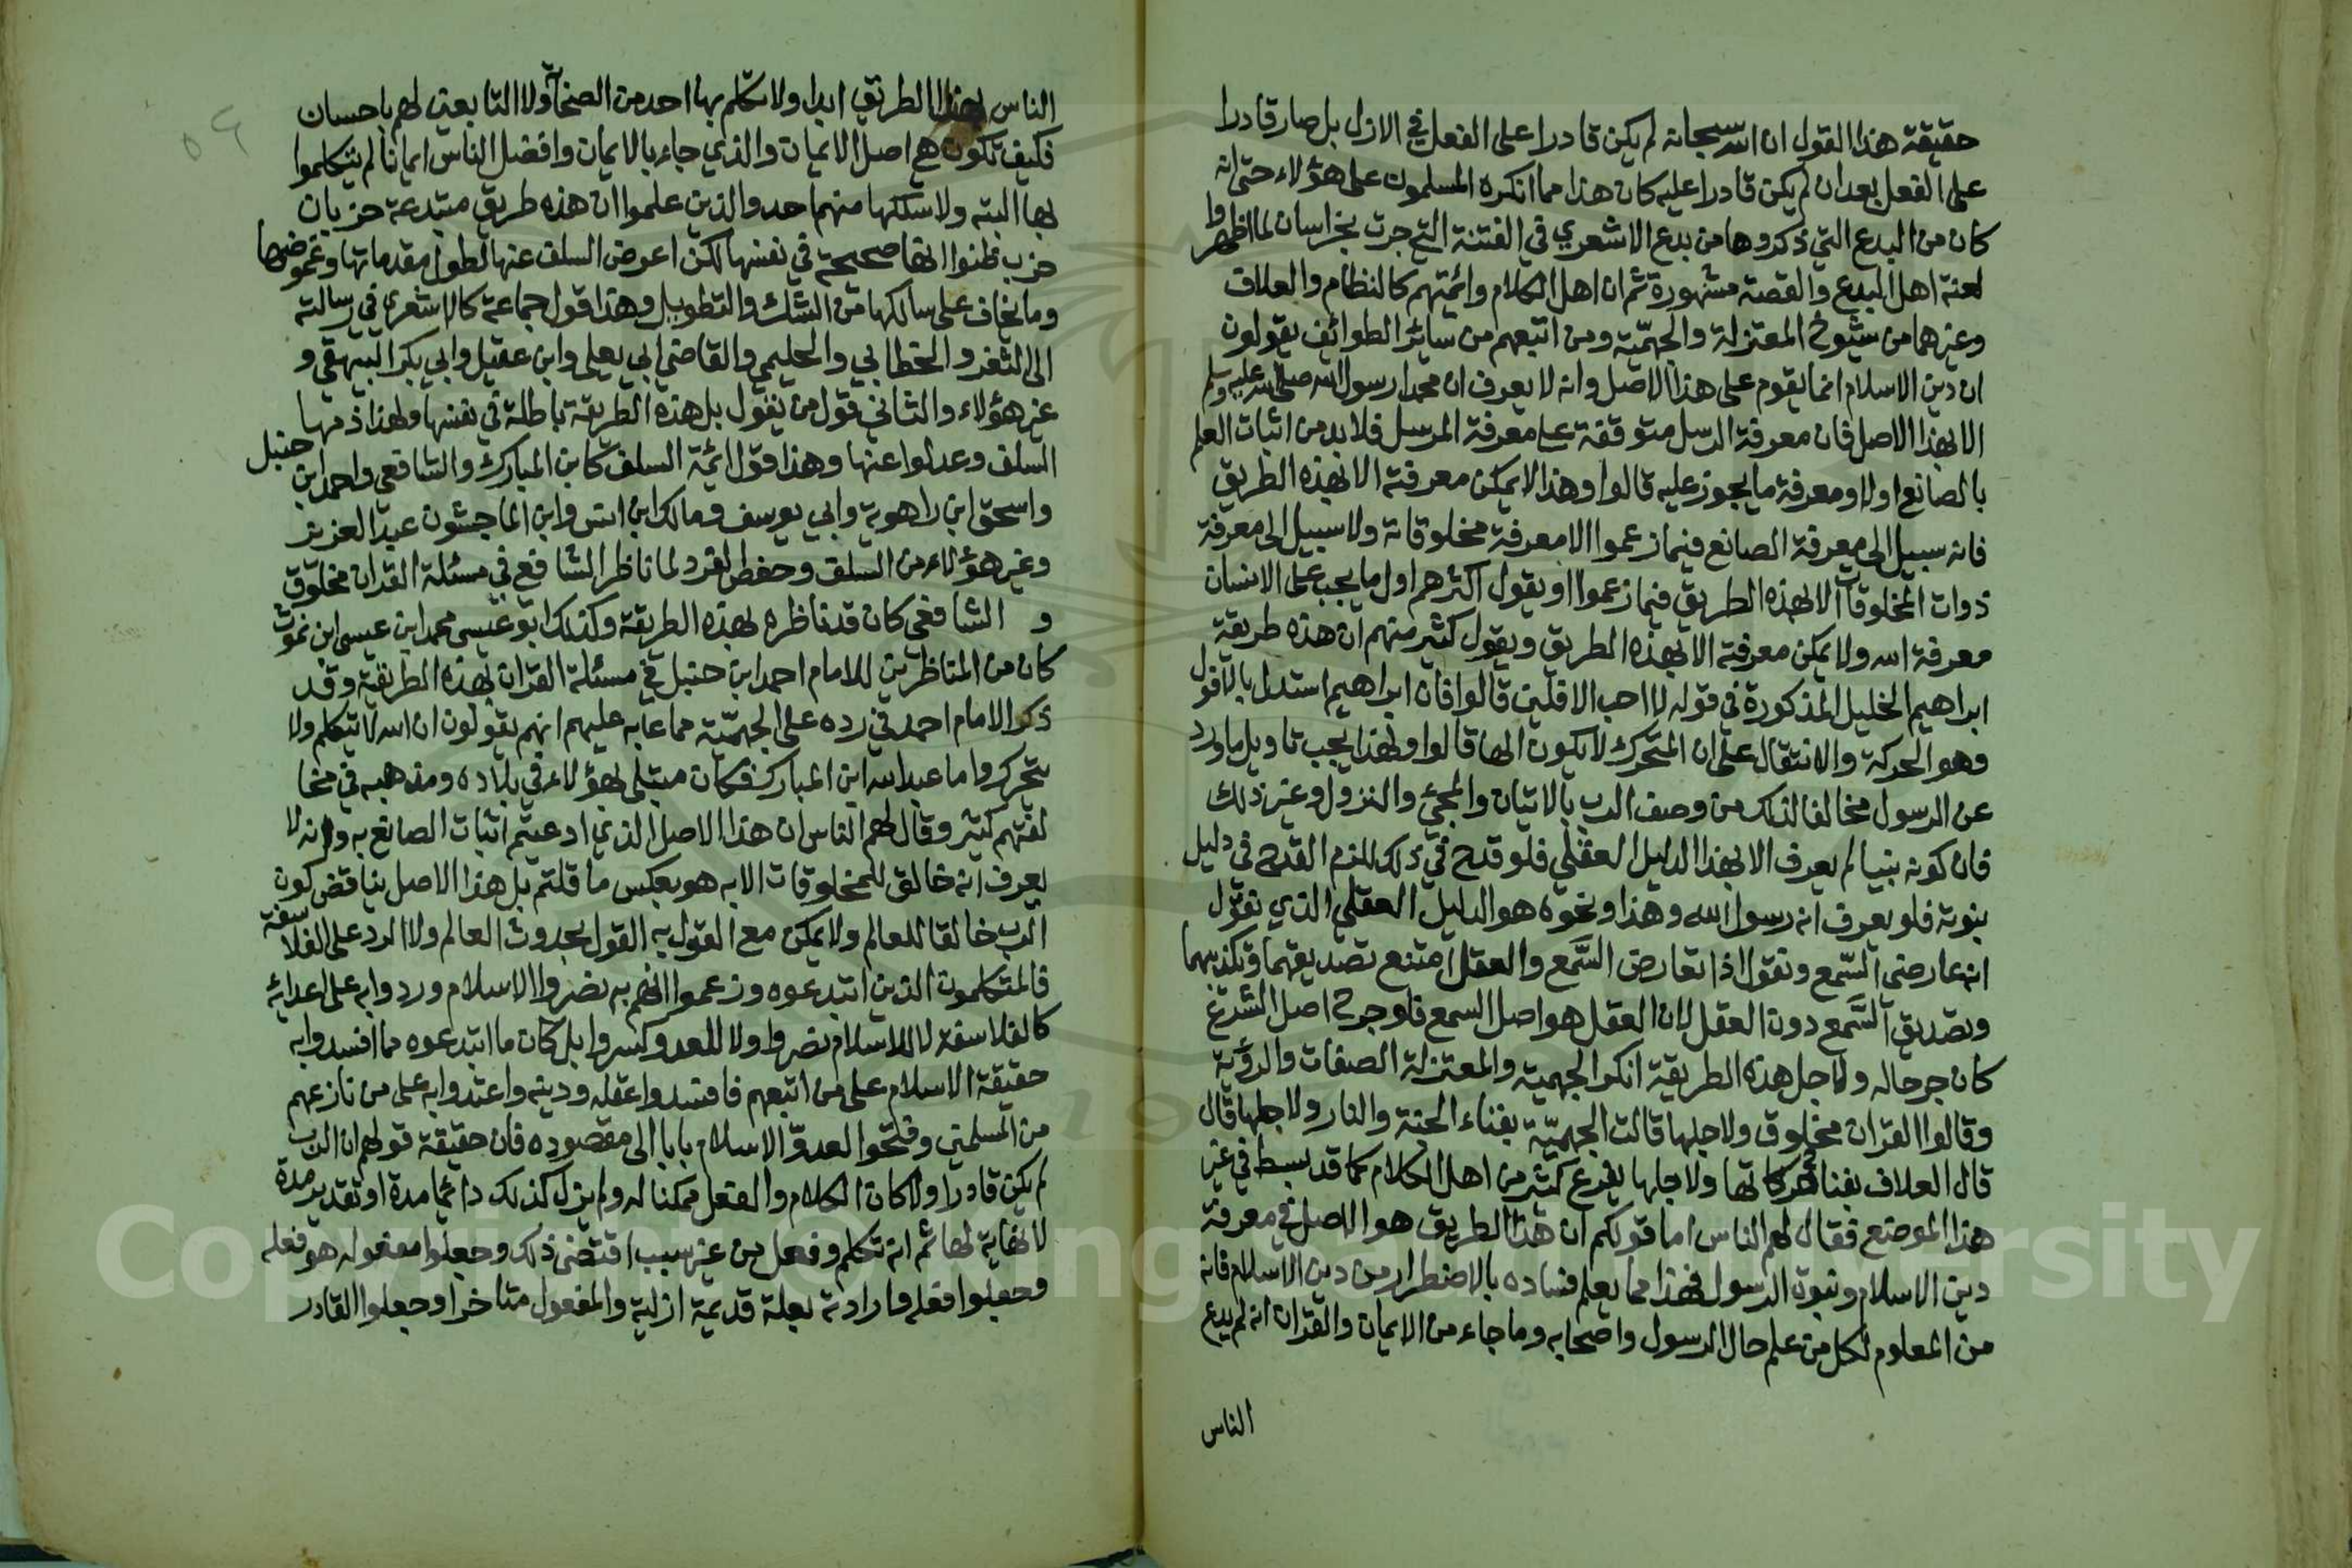 حقيقة هذا القول ان الله سبحانه لم يكن قادرا على الفعل في الازل بل صار قادرا
على الفعل بعد ان لم يكن قادرا عليه كان هذا مما انكره المسلمون على هؤلاء حتى انه
كان من البدع التي ذكروها من بدع الاشعري في الفتنة التي جرت بخراسان لما اظهروا
لعنة اهل البدع والقصة مشهورة ثم ان اهل الكلام وائمتهم كالنظام والعلاف
وغيرهما من شيوخ المعتزلة والجهميّة ومن اتبعهم من سائر الطوائف يقولون
ان دين الاسلام انما يقوم على هذا الاصل وانه لا يعرف ان محمدا رسول الله صلى الله عليه وسلم
الا بهذا الاصل فان معرفة الرسل متوقفة على معرفة المرسل فلا بد من اثبات العلم
بالصانع اولا ومعرفة ما يجوز عليه قالوا وهذا لا يمكن معرفته الا بهذه الطريق
فانه سبيل الى معرفة الصانع فيما زعموا الا معرفة مخلوقاته ولا سبيل الى معرفة
ذوات المخلوقات الا بهذه الطريق فيما زعموا او يقول اكثرهم اول ما يجب على الانسان
معرفة الله ولا يمكن معرفته الا بهذه الطريق ويقول كثير منهم ان هذه طريقة
ابراهيم الخليل المذكورة في قوله لا احب الافلين قالوا فان ابراهيم استدل بالافول
وهو الحركة والانتقال على ان المتحرك لا يكون الها قالوا ولهذا يجب تاويل ما ورد
عن الرسول مخالفا لذلك من وصف الرب بالاتيان والمجئ والنزول وغير ذلك
فان كونه نبيا لم يعرف الا بهذا الدليل العقلي فلو قدح في ذلك للزم القدح في دليل
نبوته فلو يعرف انه رسول الله وهذا ونحوه هو الدليل العقلي الذي نقول
انه عارض السّمع ونقول اذا تعارض السَّمع والعقل امتنع تصديقهما وتكذيبهما
وتصديق السَّمع دون العقل لان العقل هو اصل السمع فلو جرح اصل الشرع
كان جرحا له ولاجل هذه الطريقة انكر الجهمية والمعتزلة الصفات والرؤية
وقالوا القران مخلوق ولاجلها قالت الجهميّة بفناء الجنة والنار ولاجلها قال
قال العلاف بفناء حركاتها ولاجلها يفرع كثير من اهل الكلام كما قد بسط في غير
هذا الموضع فقال لهم الناس اما قولكم ان هذا الطريق هو الاصل في معرفة
دين الاسلام ونبوة الرسول فهذا مما يعلم فساده بالاضطرار من دين الاسلام فانه
من المعلوم لكل من علم حال الرسول واصحابه وما جاء من الايمان والقران انه لم يدع
الناس
الناس بهذا الطريق ابدا ولا تكلم بها احد من الصحابة ولا التابعين لهم باحسان
فكيف تكون هي اصل الايمان والذي جاء بالايمان وافضل الناس ايمانا لم يتكلموا
بها البته ولا سلكها منهم احد والذين علموا ان هذه طريق مبتدعة حزبان
حزب ظنوا انها صحيحة في نفسها لكن اعرض السلف عنها لطول مقدماتها وغموضها
وما يخاف على سالكها من الشك والتطويل وهذا قول جماعة كالاشعري في رسالته
الى الثغر والخطابي والحليمي والقاضي ابي يعلى وابن عقيل وابي بكر البيهقي و
غير هؤلاء والثاني قول من يقول بل هذه الطريقة باطلة في نفسها ولهذا ذمها
السلف وعدلوا عنها وهذا قول ائمة السلف كابن المبارك والشافعي واحمد ابن حنبل
واسحق ابن راهوية وابي يوسف ومالك ابن انس وابن الماجشون عبد العزيز
وغير هؤلاء من السلف وحفص الفرد لما ناظر الشافعي في مسئلة القران مخلوق
و الشافعي كان قد ناظره بهذه الطريقة وكذلك ابو عيسى محمد ابن عيسى ابن غوث
كان من المناظرين للامام احمد ابن حنبل في مسئلة القران بهذه الطريقة وقد
ذكر الامام احمد في رده على الجهميّة مما عابه عليهم انهم يقولون ان الله لا يتكلم ولا
يتحرك واما عبد الله ابن المبارك فكان مبتلى بهؤلاء في بلاده ومذهبه في مخا
لفتهم كثير وقال لهم الناس ان هذا الاصل الذي ادعيتم اثبات الصانع به وانه لا
يعرف انه خالق للمخلوقات الا به هو بعكس ما قلتم بل هذا الاصل يناقض كون
الرب خالقا للعالم ولا يمكن مع القول به القول بحدوث العالم ولا الرد على الفلاسفة
فالمتكلمون الذين ابتدعوه وزعموا انهم به نصروا الاسلام وردوا به على اعدائه
كالفلاسفة لا للاسلام نصروا ولا للعدو كسروا بل كان ما ابتدعوه مما افسدوا به
حقيقة الاسلام على من اتبعهم فافسدوا عقله ودينه واعتدوا به على من نازعهم
من المسلمين وفتحوا لعدوّ الاسلام بابا الى مقصوده فان حقيقة قولهم ان الرب
لم يكن قادرا ولا كان الكلام والفعل ممكنا له ولم يزل كذلك دائما مدة او تقدير مدة
لا نهاية لها ثم انه تكلم وفعل من غير سبب اقتضى ذلك وجعلوا مفعوله هو فعله
وجعلوا فعله وارادته بعلة قديمة ازلية والمفعول متاخرا وجعلوا القادر
Copyright © King Saud University